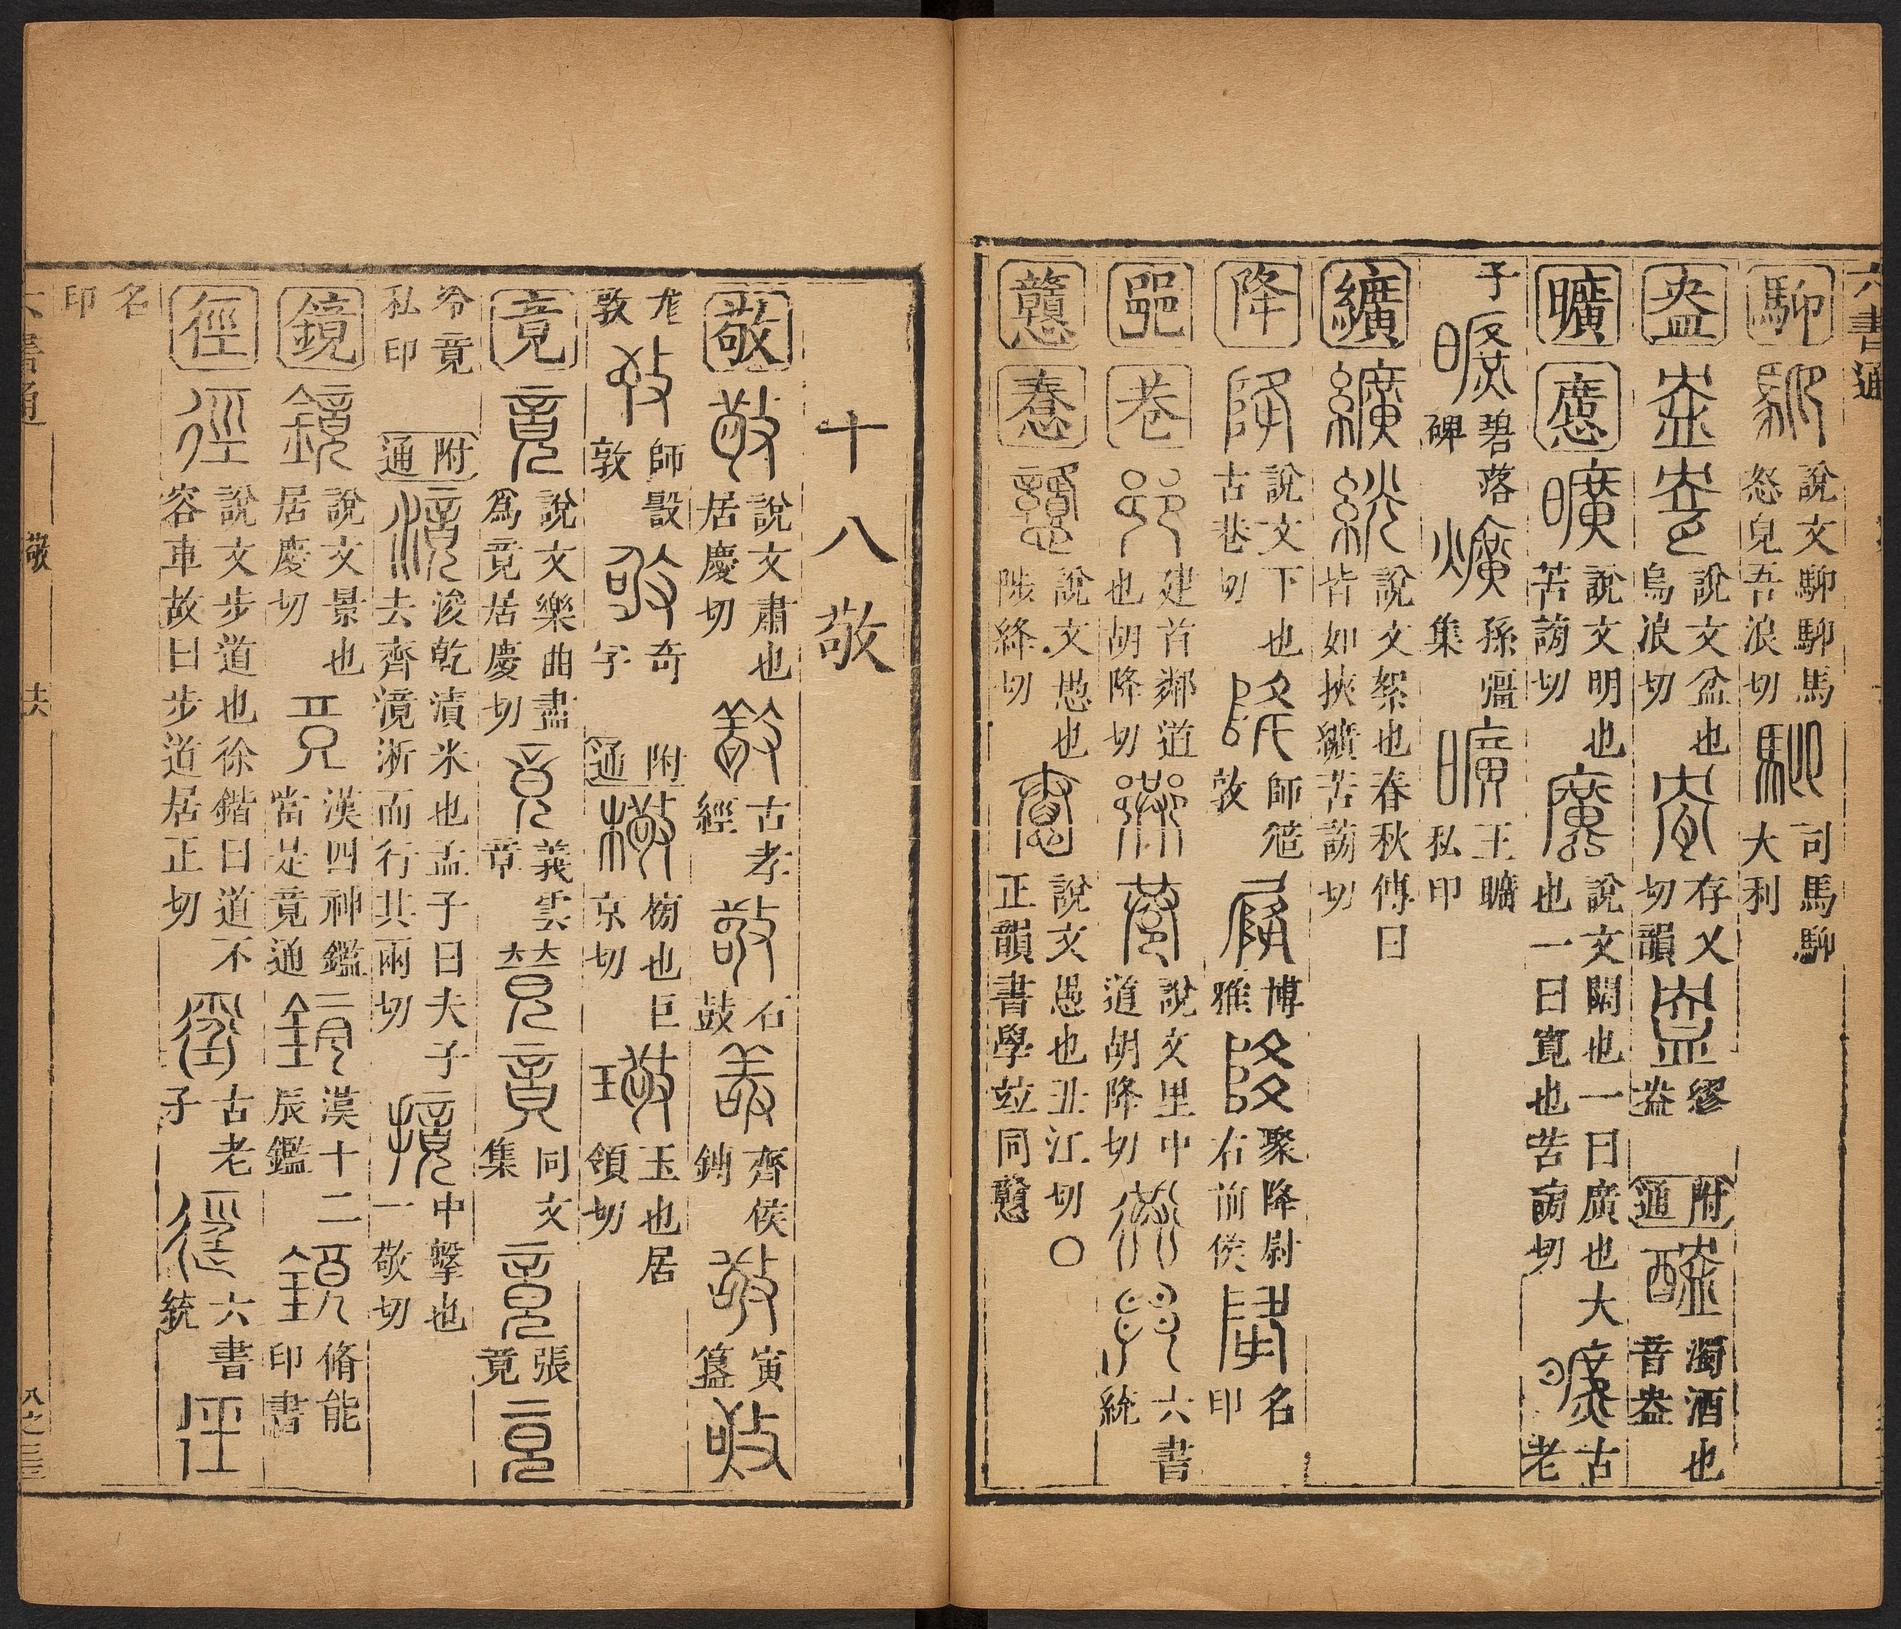 六書通
駠 說文駠駠馬怒皃吾浪切 司馬駠 大利
盎 說文盆也烏浪切 存乂切韻 繆盎 附通 濁酒也音盎
曠 懬 說文明也苦謗切 說文闊也一曰廣也大也一曰寬也苦謗切 古老
子 碧落碑 孫彊集 王曠私印
纊 說文絮也春秋傳曰皆如挾纊苦謗切
降 說文下也古巷切 師𩛥敦 博雅 聚降尉右前侯 名印
𨞠 巷 建首鄰道也胡降切 說文里中道胡降切 六書統
戇 惷 說文愚也陟絳切 說文愚也丑江切〇正韻書學竝同戇
十八敬
敬 說文肅也居慶切 古孝經 石鼓 齊侯鎛 寅簋
敦 師毀敦 奇字 附通 榜也巨京切 玉也居領切
竟 說文樂曲盡爲竟居慶切 義雲章 同文集 張竟
泠竟私印 附通 浚乾漬米也孟子曰夫子去齊滰淅而行其兩切 中擊也一敬切
鏡 說文景也居慶切 漢四神鑑當是竟通 漢十二辰鑑 脩能印書
徑 說文步道也徐鍇曰道不容車故曰步道居正切 古老子 六書統
名印
六書通 敬 八之三